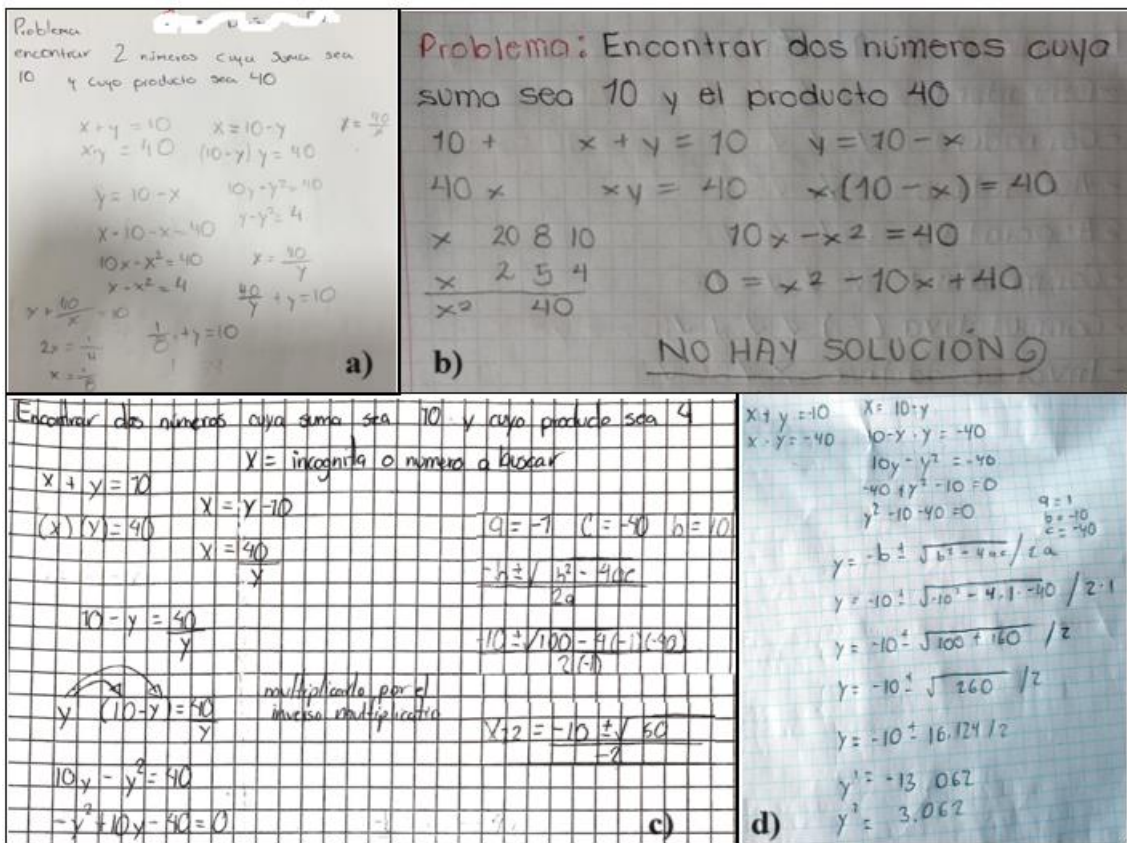 Problema
encontrar 2 números cuya suma sea
10 y cuyo producto sea 40
x + y = 10   x = 10 - y
x·y = 40   (10-y) y = 40
y = 10 - x   10y - y² = 40
x - 10 - x = 40   y - y² = 4
10x - x² = 40   x = 40/y
x - x² = 4   40/y + y = 10
x + 40/x = 10   1/8 + y = 10
2x = 1/4
x = 1/8
a)
Problema: Encontrar dos números cuya
suma sea 10 y el producto 40
10 +   x + y = 10   y = 10 - x
40 x   xy = 40   x(10 - x) = 40
x   20 8 10   10x - x² = 40
x   2 5 4   0 = x² - 10x + 40
x²   40
NO HAY SOLUCIÓN
b)
Encontrar dos números cuya suma sea 10 y cuyo producto sea 4
X = incognita o numero a buscar
x + y = 10
x = y - 10
(x)(y) = 40
x = 40/y
10 - y = 40/y
y (10 - y) = 40/y   multiplicarlo por el
inverso multiplicativo
10y - y² = 40
-y² + 10y - 40 = 0
a = -1   C = -40   b = 10
-b ± √b² - 4ac / 2a
-10 ± √100 - 4(-1)(-40) / 2(-1)
= -10 ± √60 / -2
c)
x + y = -10   x = 10 - y
x · y = -40   10 - y · y = -40
10y - y² = -40
-40 + y² - 10 = 0
y² - 10 - 40 = 0
a = 1
b = -10
c = -40
y = -b ± √b² - 4ac / 2a
y = -10 ± √-10² - 4·1·-40 / 2·1
y = -10 ± √100 + 160 / 2
y = -10 ± √260 / 2
y = -10 ± 16.124 / 2
y¹ = -13.062
y² = 3.062
d)